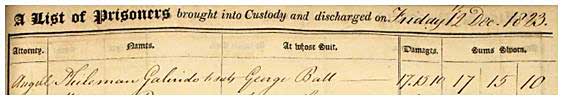 A List of Prisoners brought into Custody and discharged on Friday 12 Dec. 1823.
Attorney. Names. At whose Suit. Damages. Sums Sworn.
Philemon Galindo George Ball 17.15.10 17 15 10